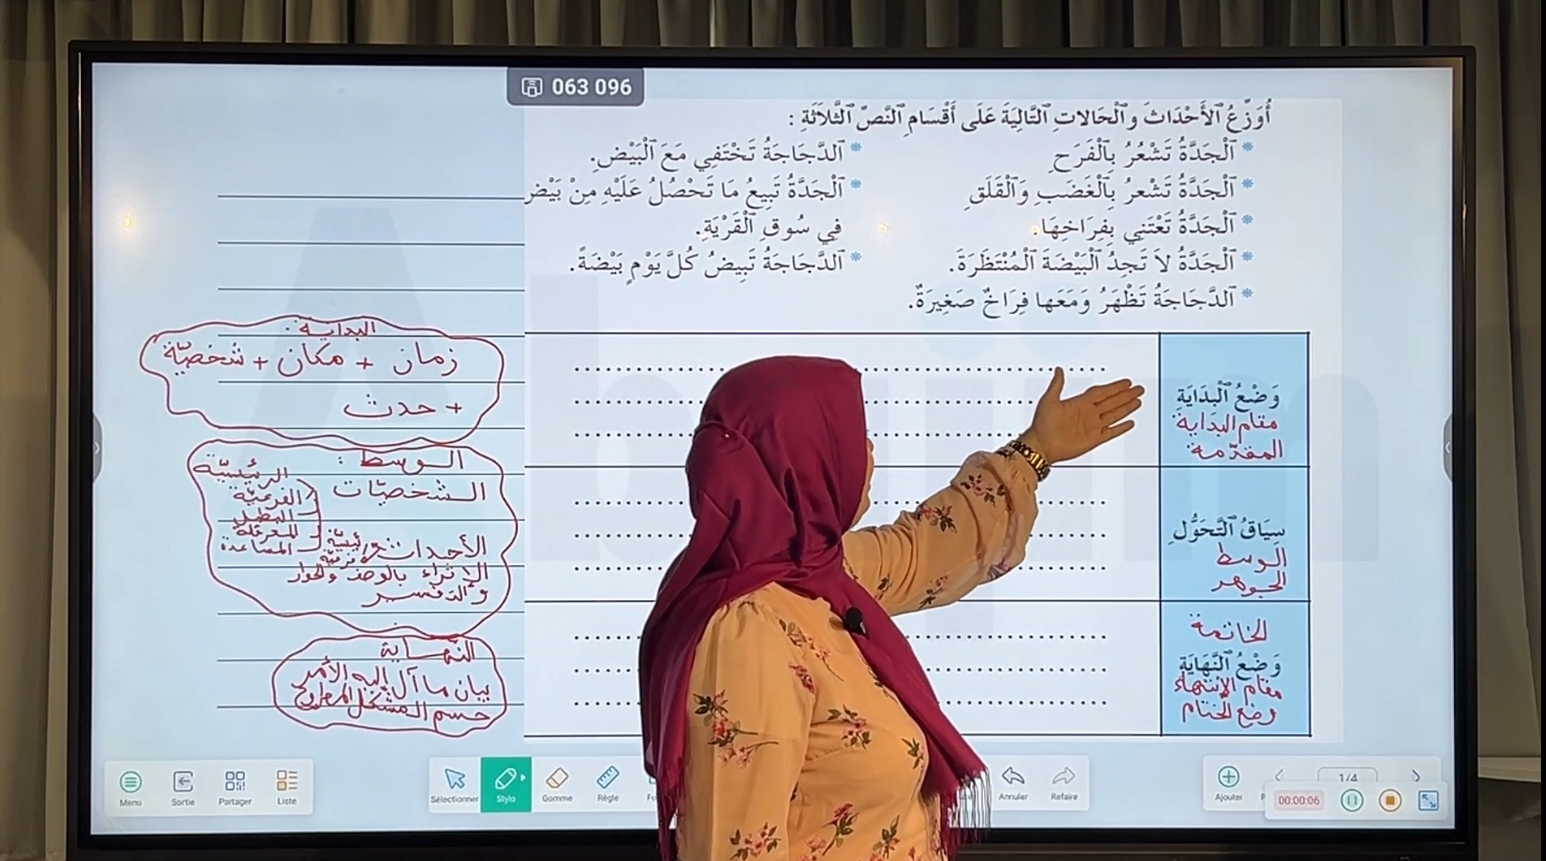 063 096
أُوَزِّعُ ٱلأَحْدَاثَ وَٱلْحَالاتِ ٱلتَّالِيَةَ عَلَى أَقْسَامِ ٱلنَّصِّ ٱلثَّلاَثَةِ :
* ٱلْجَدَّةُ تَشْعُرُ بِٱلْفَرَحِ
* ٱلْجَدَّةُ تَشْعرُ بِٱلْغَضَبِ وَٱلْقَلَقِ
* ٱلْجَدَّةُ تَعْتَنِي بِفِرَاخِهَا.
* ٱلْجَدَّةُ لاَ تَجِدُ ٱلْبَيْضَةَ ٱلْمُنْتَظَرَةَ.
* ٱلدَّجَاجَةُ تَظْهَرُ وَمَعَها فِرَاخٌ صَغِيرَةٌ.
* ٱلدَّجَاجَةُ تَخْتَفِي مَعَ ٱلْبَيْضِ.
* ٱلْجَدَّةُ تَبِيعُ مَا تَحْصُلُ عَلَيْهِ مِنْ بَيْضٍ
فِي سُوقِ ٱلْقَرْيَةِ.
* ٱلدَّجَاجَةُ تَبِيضُ كُلَّ يَوْمٍ بَيْضَةً.
وَضْعُ ٱلْبِدَايَةِ
مقام البداية
المقدّمة
سِيَاقُ ٱلتَّحَوُّلِ
الوسط
الجوهر
الخاتمة
وَضْعُ ٱلنِّهَايَةِ
مقام الإنتهاء
وضع الختام
البداية :
زمان + مكان + شخصيّة
+ حدث
الوسط :
الشخصيّات
الرئيسيّة
الفرعيّة
البطل
المعرقلة
المساعدة
الأحداث
الإثراء بالوصف والحوار
والتفسير
النّهاية
بيان ما آل إليه الأمر
حسم المشكل المطروح
Menu
Sortie
Partager
Liste
Sélectionner
Stylo
Gomme
Règle
Annuler
Refaire
Ajouter
1/4
00:00:06